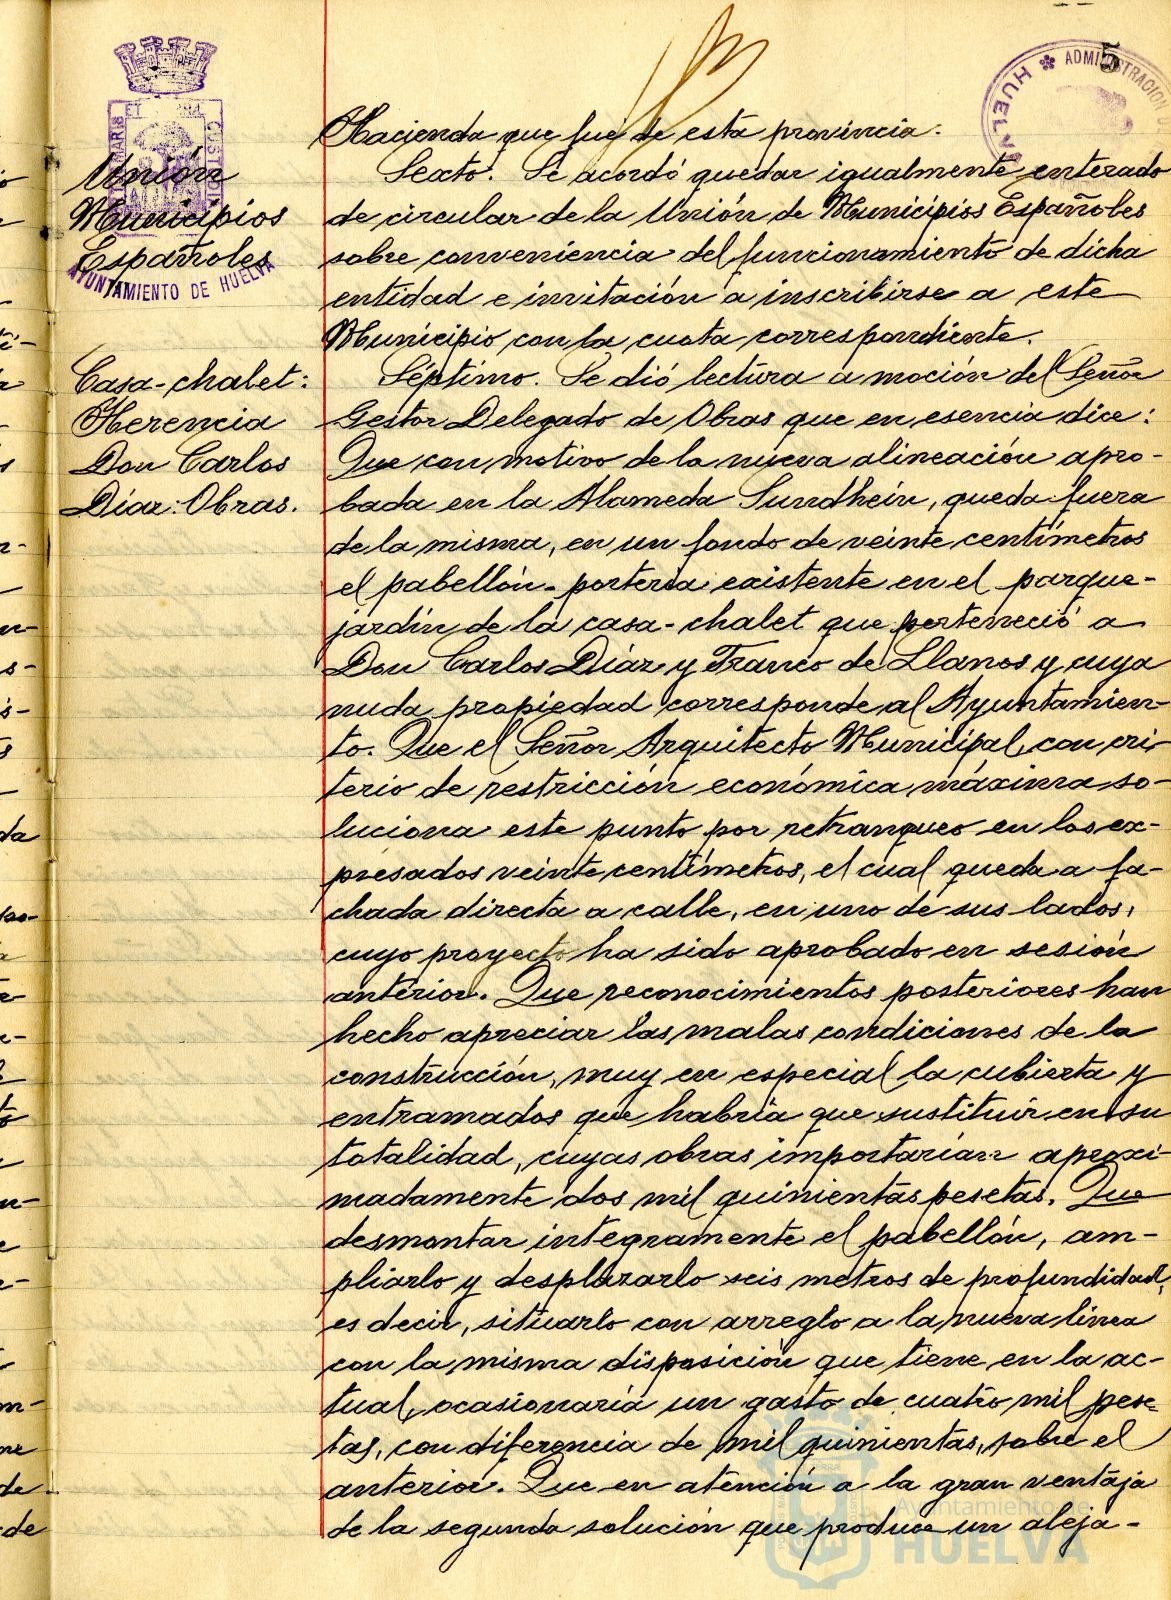 5
HUELVA ADMINISTRACION
ET
MARIS
CUSTODIA
AYUNTAMIENTO DE HUELVA
Unión
Municipios
Españoles
Hacienda que fué de esta provincia.
Sexto. Se acordó quedar igualmente enterado
de circular de la Unión de Municipios Españoles
sobre conveniencia del funcionamiento de dicha
entidad e invitación a inscribirse a este
Municipio con la cuota correspondiente.
Casa-chalet:
Herencia
Don Carlos
Díaz: Obras.
Séptimo. Se dió lectura a moción del Señor
Gestor Delegado de Obras que en esencia dice:
Que con motivo de la nueva alineación apro-
bada en la Alameda Sundhein, queda fuera
de la misma, en un fondo de veinte centímetros
el pabellón-portería existente en el parque-
jardín de la casa-chalet que perteneció a
Don Carlos Díaz y Franco de Llanos y cuya
nuda propiedad corresponde al Ayuntamien-
to. Que el Señor Arquitecto Municipal, con cri-
terio de restricción económica máxima so-
luciona este punto por retranqueo en los ex-
presados veinte centímetros, el cual queda a fa-
chada directa a calle, en uno de sus lados,
cuyo proyecto ha sido aprobado en sesión
anterior. Que reconocimientos posteriores han
hecho apreciar las malas condiciones de la
construcción, muy en especial la cubierta y
entramados que habría que sustituir en su
totalidad, cuyas obras importarían aproxi-
madamente dos mil quinientas pesetas. Que
desmontar integramente el pabellón, am-
pliarlo y desplazarlo seis metros de profundidad,
es decir, situarlo con arreglo a la nueva línea
con la misma disposición que tiene en la ac-
tual, ocasionaría un gasto de cuatro mil pese-
tas, con diferencia de mil quinientas, sobre el
anterior. Que en atención a la gran ventaja
de la segunda solución que produce un aleja-
Ayuntamiento de
HUELVA